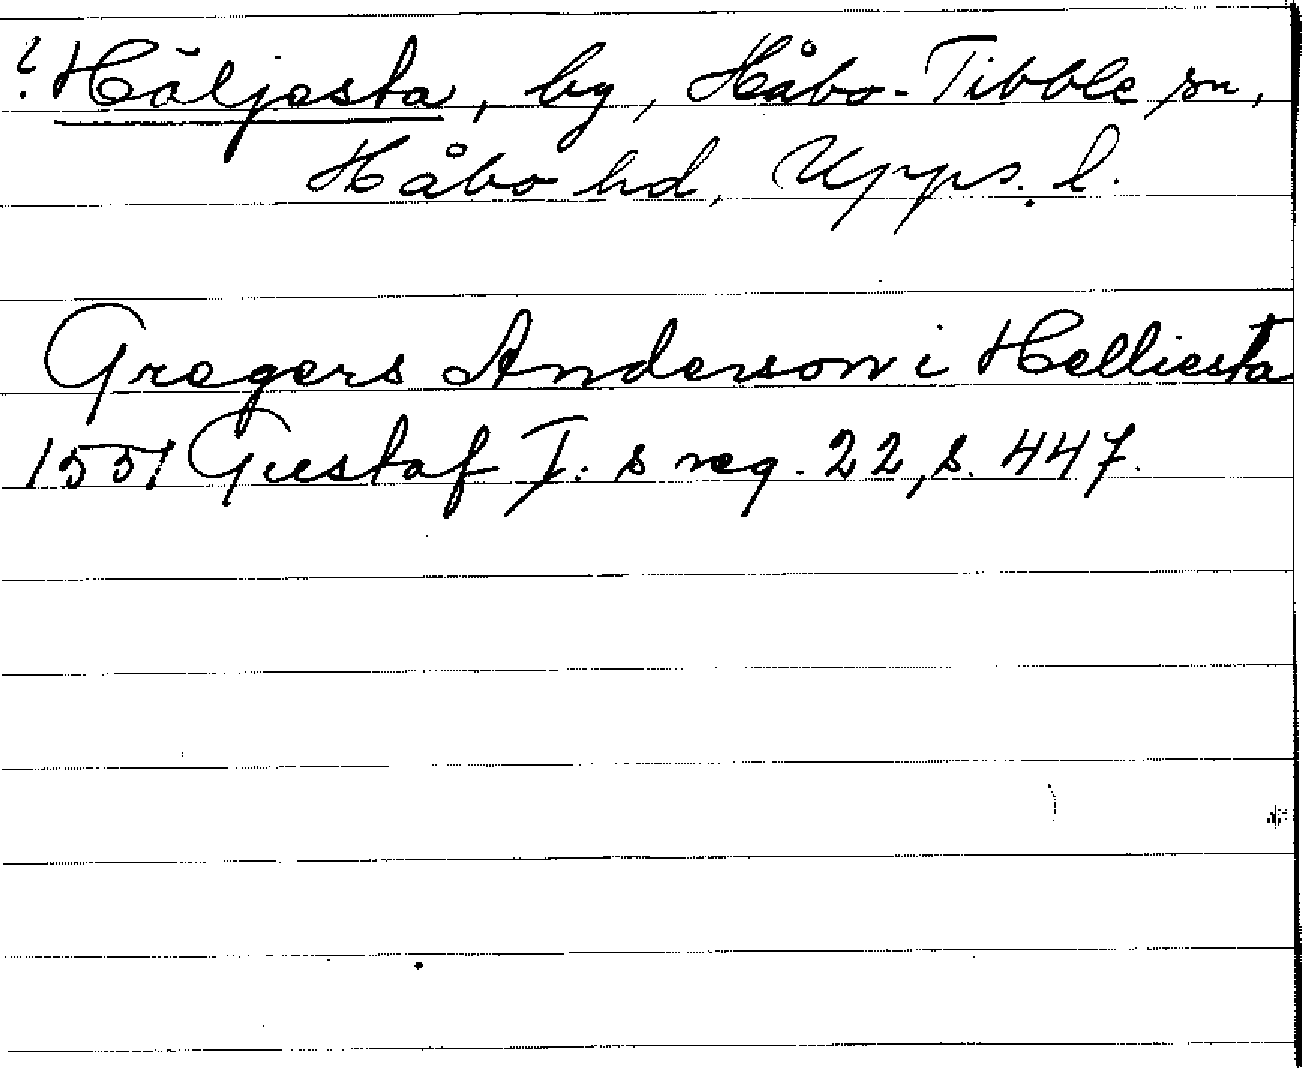 ? Häljesta, by, Håbo-Tibble sn,
Håbo hd, Upps. l.
Gregers Anderson i Helliesta
1551 Gustaf I:s reg. 22, s. 447.